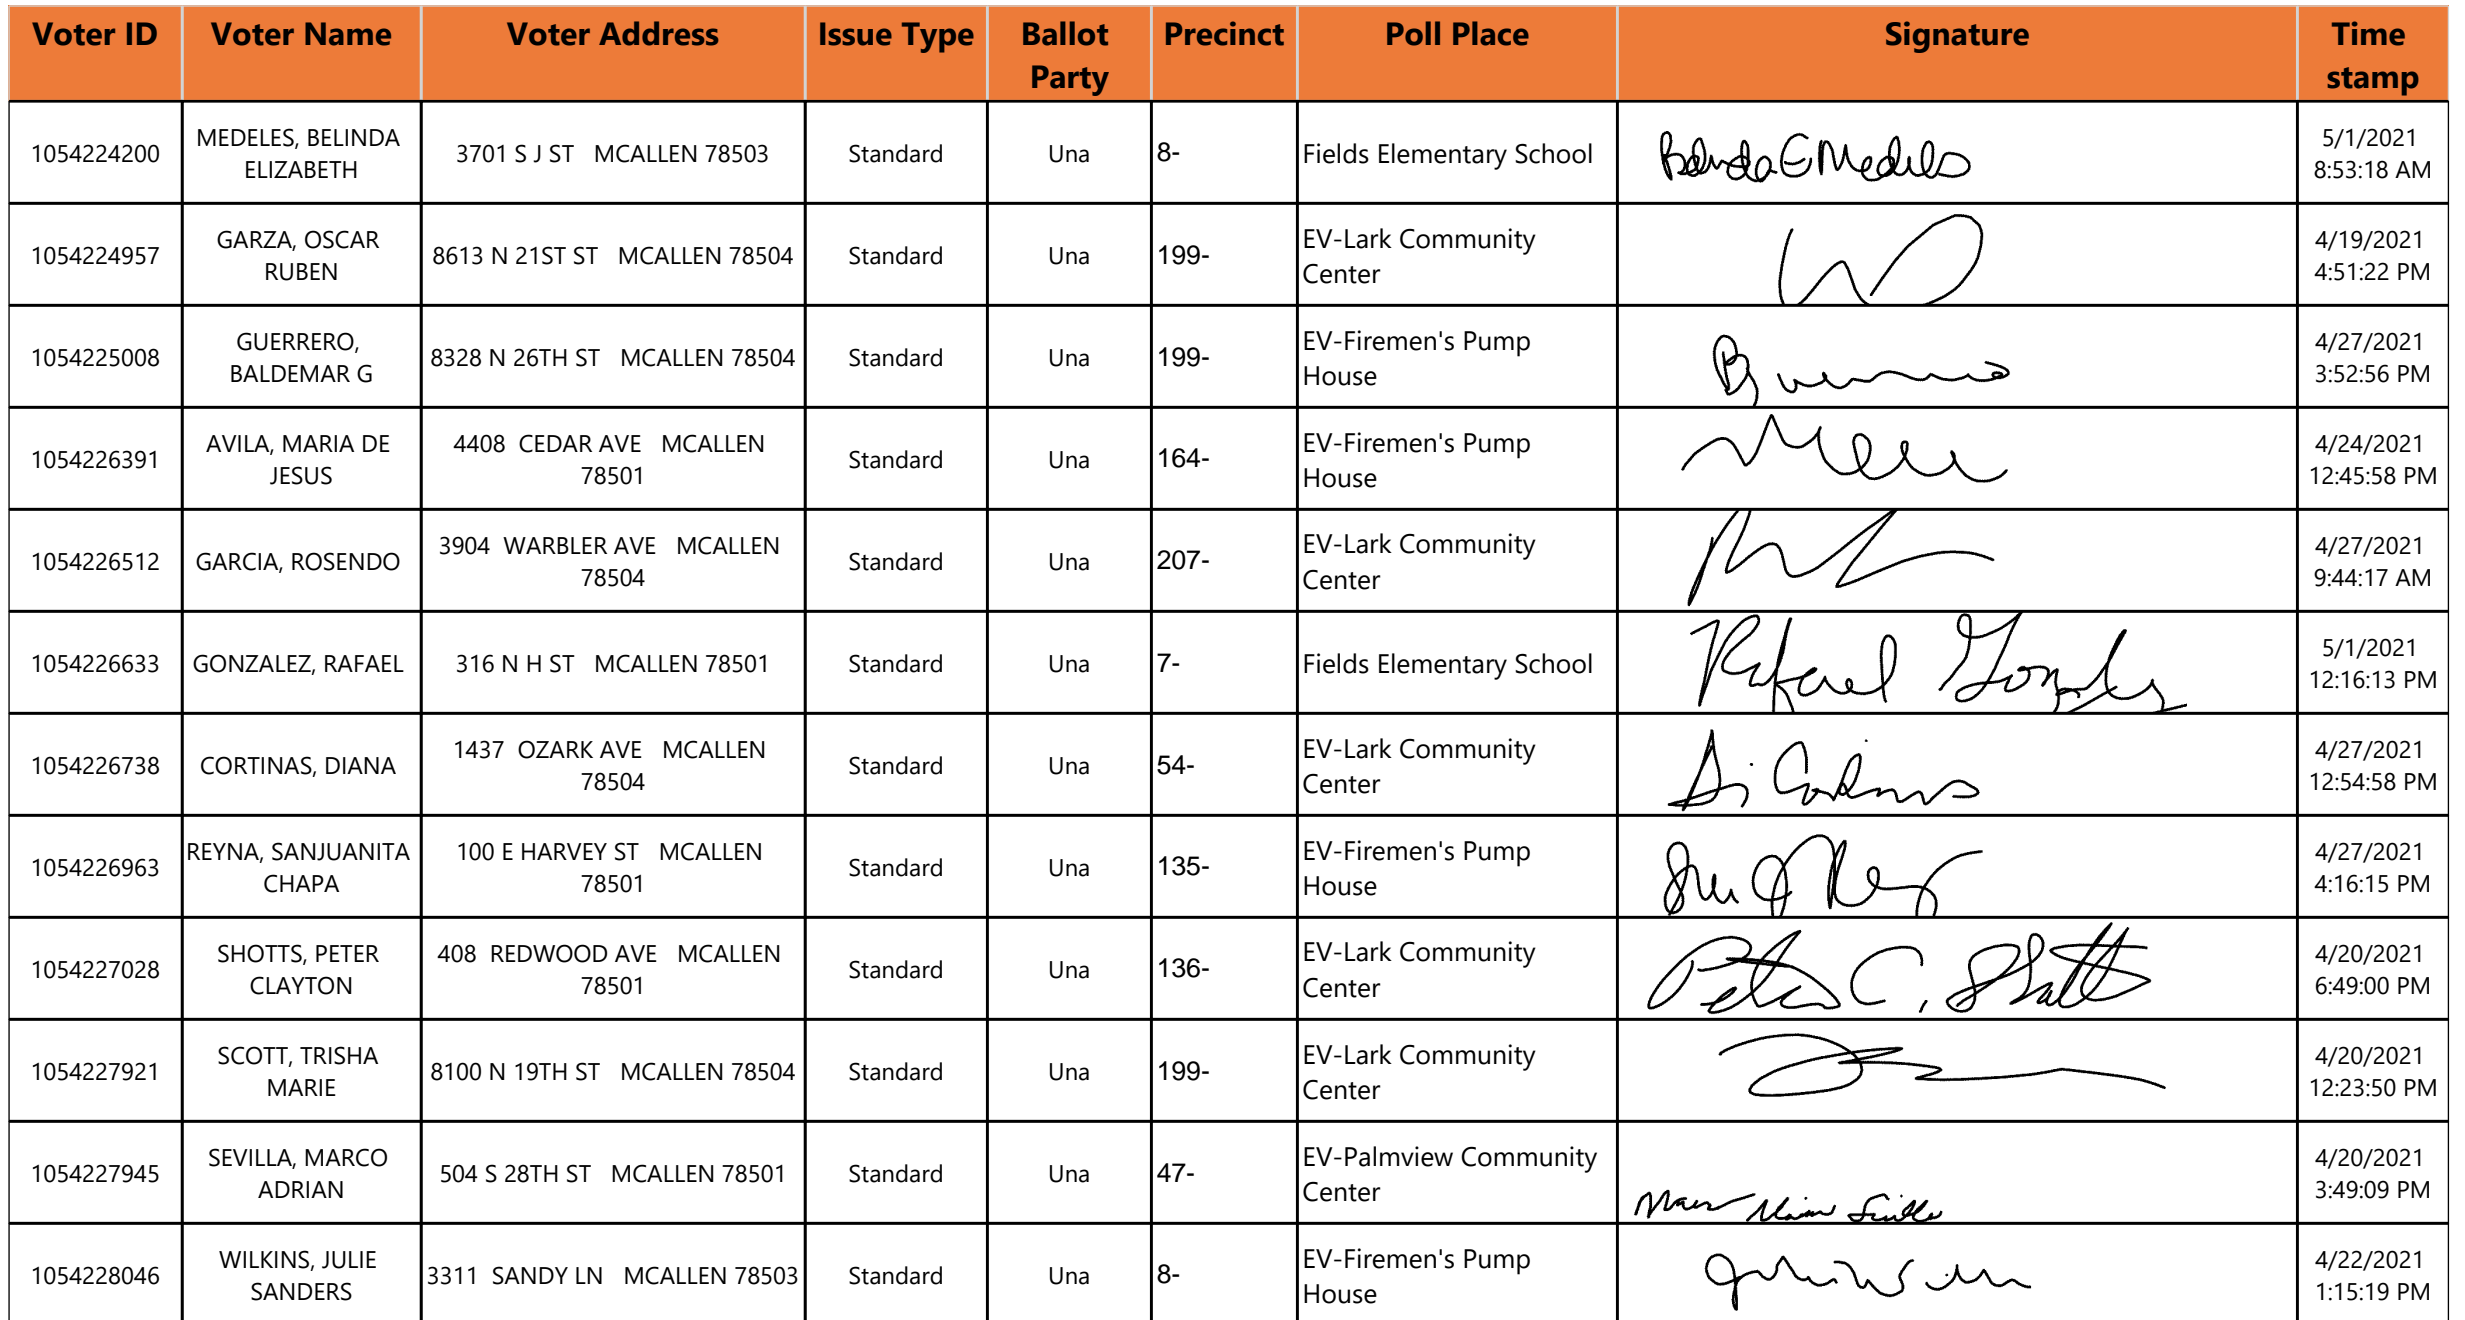 Voter ID Voter Name Voter Address Issue Type Ballot Party Precinct Poll Place Signature Time stamp
1054224200 MEDELES, BELINDA ELIZABETH 3701 S J ST MCALLEN 78503 Standard Una 8- Fields Elementary School Belinda E Medeles 5/1/2021 8:53:18 AM
1054224957 GARZA, OSCAR RUBEN 8613 N 21ST ST MCALLEN 78504 Standard Una 199- EV-Lark Community Center 4/19/2021 4:51:22 PM
1054225008 GUERRERO, BALDEMAR G 8328 N 26TH ST MCALLEN 78504 Standard Una 199- EV-Firemen's Pump House 4/27/2021 3:52:56 PM
1054226391 AVILA, MARIA DE JESUS 4408 CEDAR AVE MCALLEN 78501 Standard Una 164- EV-Firemen's Pump House 4/24/2021 12:45:58 PM
1054226512 GARCIA, ROSENDO 3904 WARBLER AVE MCALLEN 78504 Standard Una 207- EV-Lark Community Center 4/27/2021 9:44:17 AM
1054226633 GONZALEZ, RAFAEL 316 N H ST MCALLEN 78501 Standard Una 7- Fields Elementary School Rafael Gonzalez 5/1/2021 12:16:13 PM
1054226738 CORTINAS, DIANA 1437 OZARK AVE MCALLEN 78504 Standard Una 54- EV-Lark Community Center 4/27/2021 12:54:58 PM
1054226963 REYNA, SANJUANITA CHAPA 100 E HARVEY ST MCALLEN 78501 Standard Una 135- EV-Firemen's Pump House 4/27/2021 4:16:15 PM
1054227028 SHOTTS, PETER CLAYTON 408 REDWOOD AVE MCALLEN 78501 Standard Una 136- EV-Lark Community Center Peter C. Shotts 4/20/2021 6:49:00 PM
1054227921 SCOTT, TRISHA MARIE 8100 N 19TH ST MCALLEN 78504 Standard Una 199- EV-Lark Community Center 4/20/2021 12:23:50 PM
1054227945 SEVILLA, MARCO ADRIAN 504 S 28TH ST MCALLEN 78501 Standard Una 47- EV-Palmview Community Center 4/20/2021 3:49:09 PM
1054228046 WILKINS, JULIE SANDERS 3311 SANDY LN MCALLEN 78503 Standard Una 8- EV-Firemen's Pump House 4/22/2021 1:15:19 PM